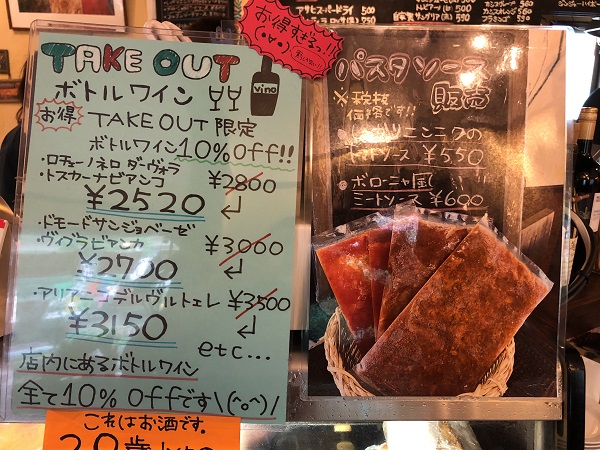 アサヒスーパードライ 500
550
トッピアー(黒) 500
自家製サングリア(赤) 590
560
お得すぎる。!!
TAKE OUT
ボトルワイン
vino
お得
TAKE OUT 限定
ボトルワイン10%off!!
・ロチューノネロ ダーヴォラ
・トスカーナビアンコ ¥2800
¥2520
・ドモードサンジョベーゼ
・ヴィブラビアンカ ¥3000
¥2700
・アリアーニコデルヴルトェレ ¥3500
¥3150
etc...
店内にあるボトルワイン
全て10%offです\(^o^)/
これはお酒です。
20歳
パスタソース
販売
※税抜
価格です!!
ニンニクの
トマトソース ¥550
・ボローニャ風
ミートソース ¥600